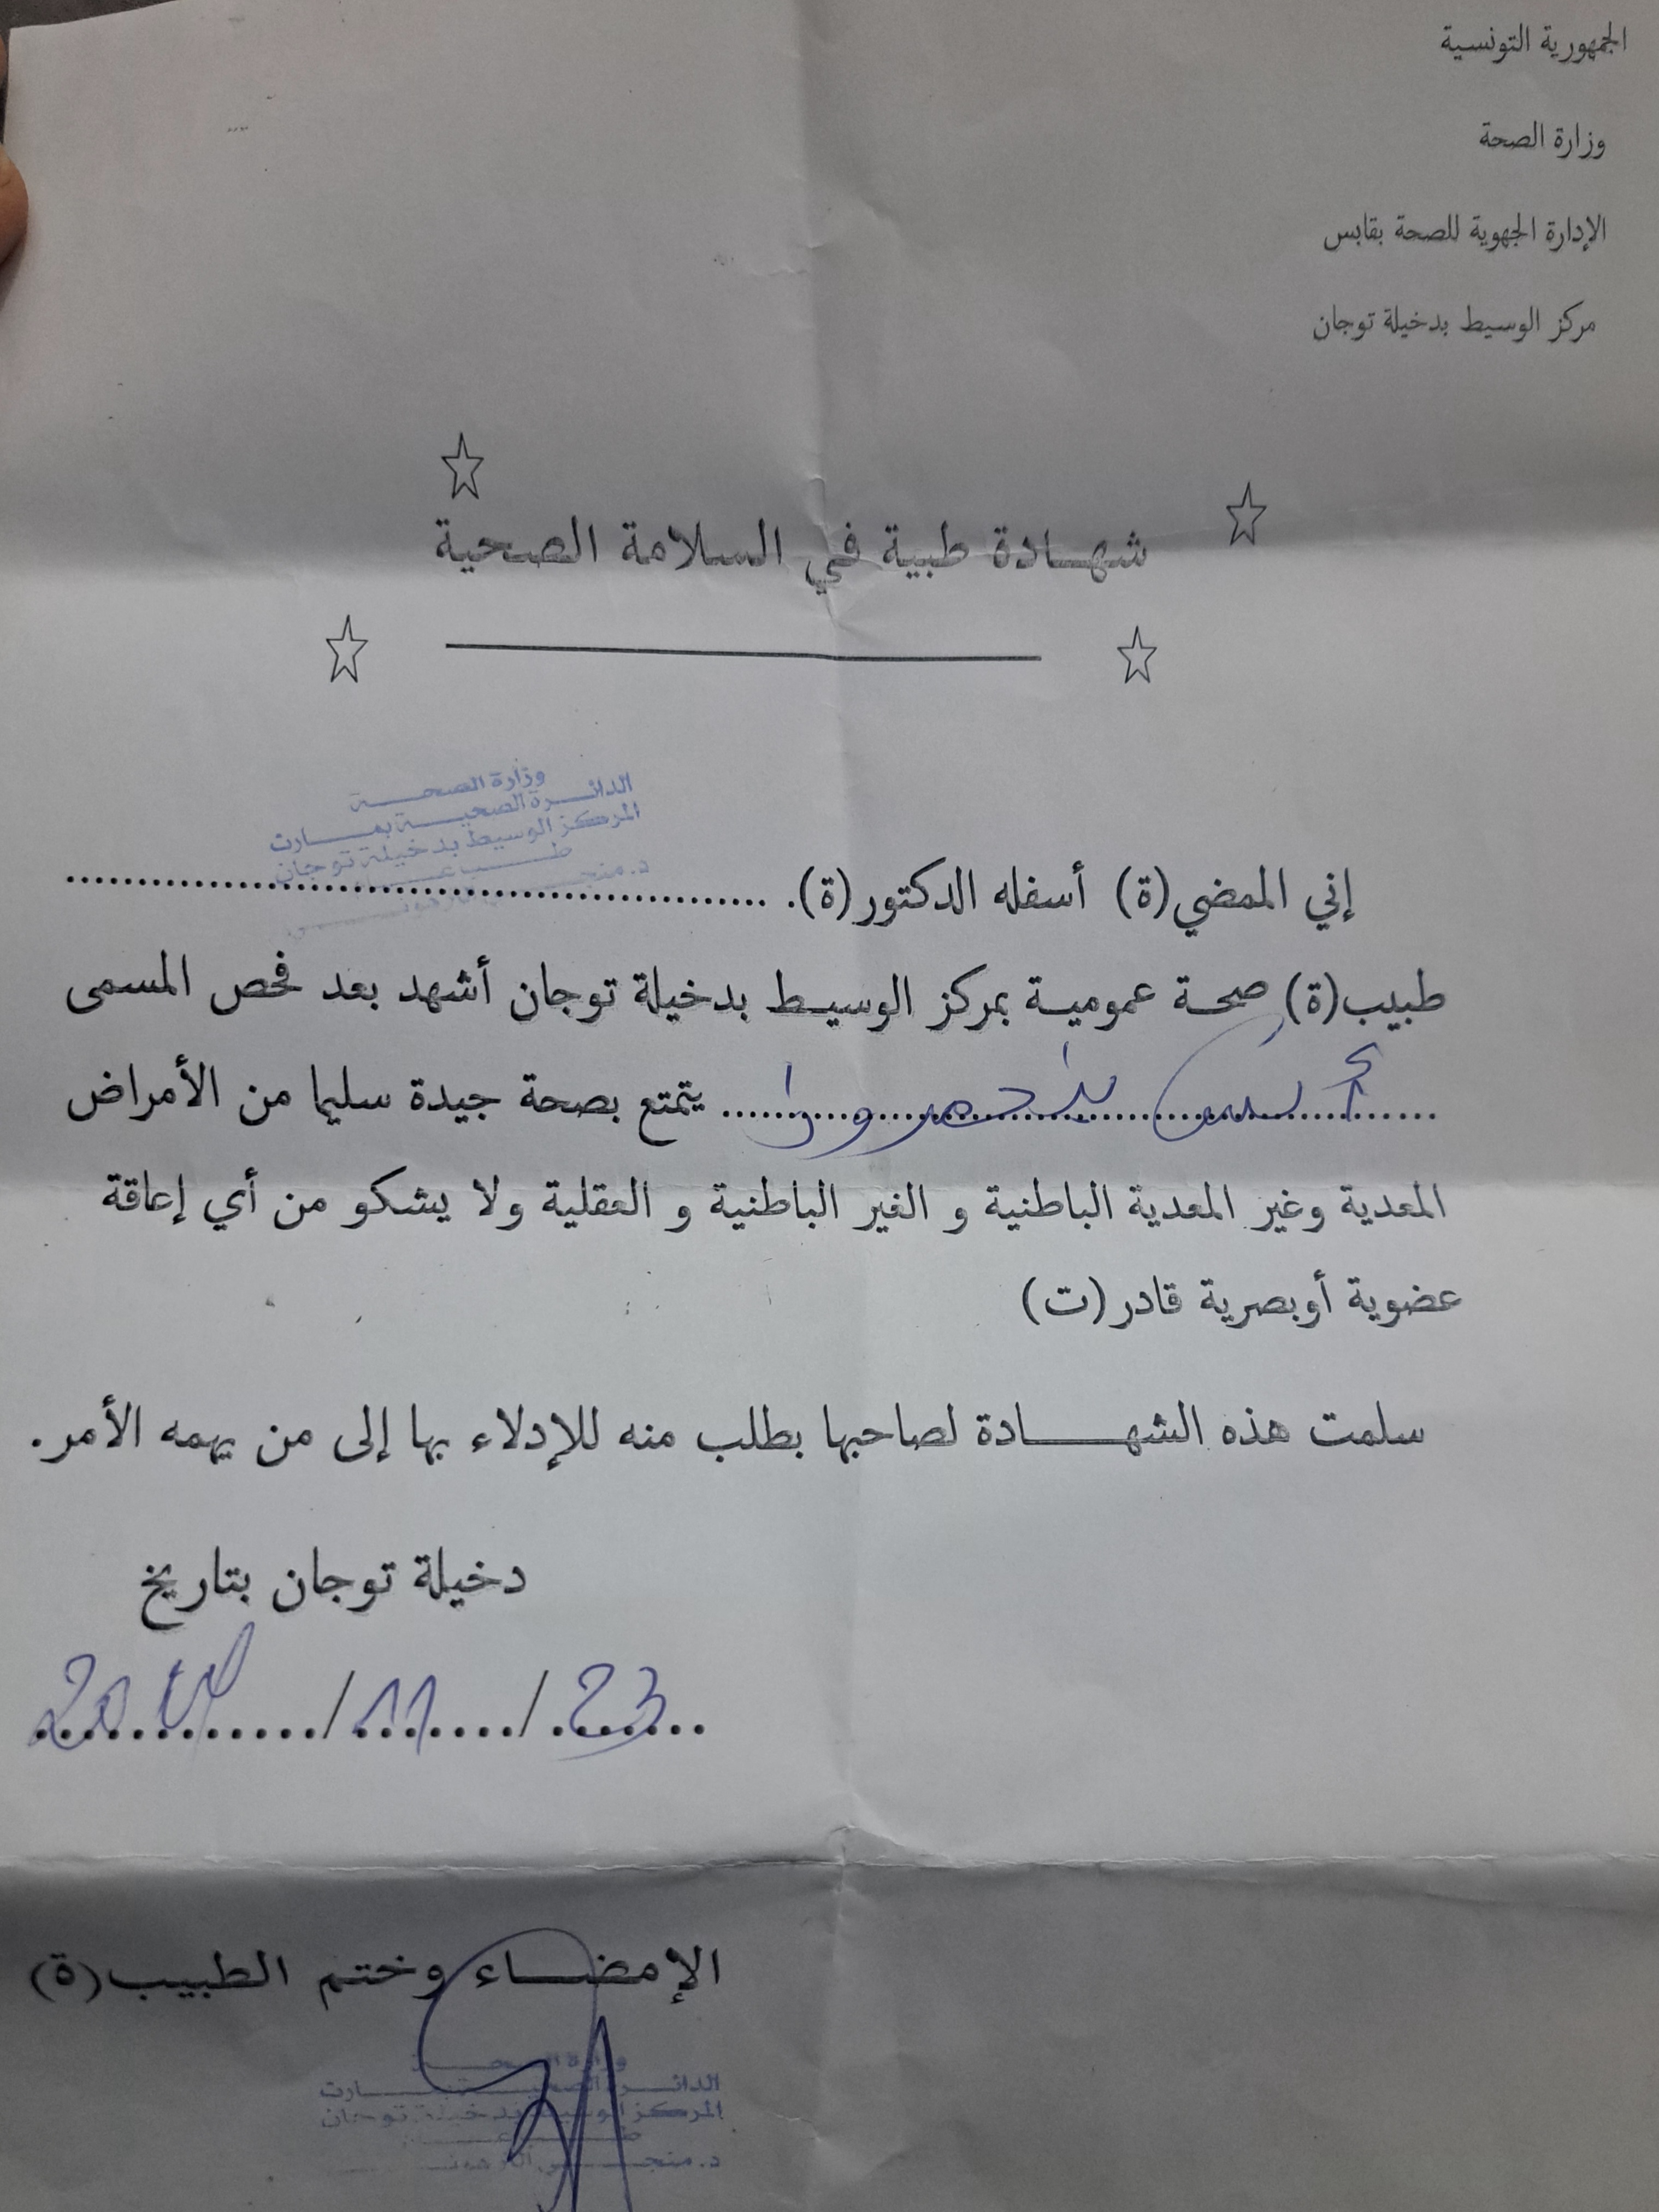 الجمهورية التونسية
وزارة الصحة
الإدارة الجهوية للصحة بقابس
مركز الوسيط بدخيلة توجان
شهادة طبية في السلامة الصحية
وزارة الصحة
الدائرة الصحية بمارث
المركز الوسيط بدخيلة توجان
طب
د. منجي
إني الممضي(ة) أسفله الدكتور(ة). ..........................................................
طبيب(ة) صحة عمومية بمركز الوسيط بدخيلة توجان أشهد بعد فحص المسمى
أنس يتمتع بصحة جيدة سليما من الأمراض
المعدية وغير المعدية الباطنية و الغير الباطنية و العقلية ولا يشكو من أي إعاقة
عضوية أوبصرية قادر(ت)
سلمت هذه الشهادة لصاحبها بطلب منه للإدلاء بها إلى من يهمه الأمر.
دخيلة توجان بتاريخ
23 / 11 /
الإمضاء وختم الطبيب(ة)
وزارة الصحة
الدائرة الصحية بمارث
المركز الوسيط بدخيلة توجان
د. منجي